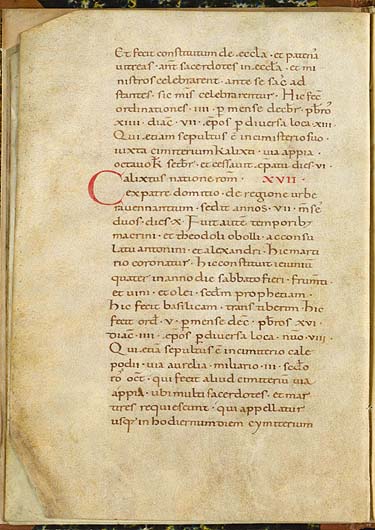 Et fecit constitutum de ęccła · et patena
uitreas · anť sacerdotes in ęccła · et mi
nistros celebrarent · ante se sac̄ ad
stantes · sic mis̄ celebrarentur · Hic fec̄
ordinationes · IIII · p̄ mense decbr̄ · pbr̄o
XIIII · diac̄ · VII · ep̄os p̄ diuersa loca · XIII ·
Qui etiam sepultus ē in cimisterio suo ·
iuxta cimiterium kalixti · uia appia ·
octauo k̄ septbr̄ · et cessauit ep̄atu dies · VI ·
Calixtus natione rom̄ · XVII ·
ex patre domitio · de regione urbe
rauennantium · sedit annos · VII · mse
duos · dies · X · Fuit autē temporib;
macrini · et theodoli obolli · a consu
latu antonini · et alexandri · hic marti
rio coronatur · hic constituit ieiuniū
quater in anno die sabbato fieri · frum̄ti
et uini · et olei · sc̄dm prophetiam ·
hic fecit basilicam · trans tiberim hic
fecit ord̄ · V · p̄ mense dec̄ · pbr̄os · XVI ·
diac̄ · IIII · ep̄os p̄ diuersa loca · nuo · VIII ·
Qui etiā sepultus ē in cimiterio cale
podii · uia aurelia · miliario · III · sec̄do
 oc̄t · qui fecit aliud cimiteriū uia
appia · ubi multi sacerdotes · et mar
tires requiescunt · qui appellatur
usq; in hodiernum diem cymiterium